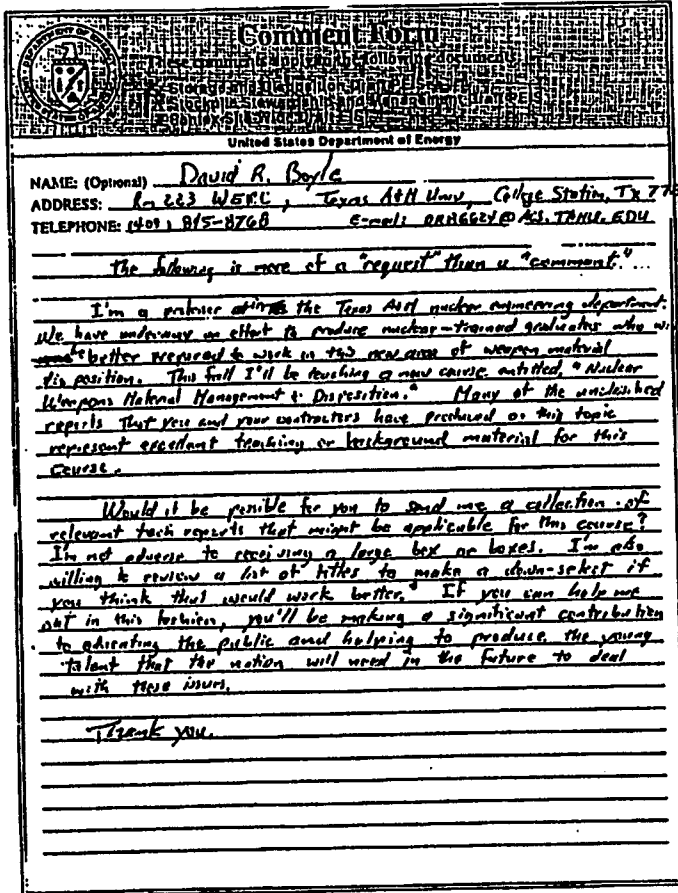 Comment Form
These comments apply to the following documents
Storage and Disposition Draft PEIS
Stockpile Stewardship and Management Draft PEIS
Pantex Site-Wide Draft EIS
United States Department of Energy
NAME: (Optional) David R. Boyle
ADDRESS: Rm 223 WERC, Texas A&M Univ, College Station, Tx 778
TELEPHONE: (409) 845-8768 E-mail:
The following is more of a "request" than a "comment."...
I'm a professor the Texas A&M nuclear engineering department.
We have underway an effort to produce nuclear-trained graduates who wi
better prepared to work in this new area of weapon material
disposition. This fall I'll be teaching a new course entitled, "Nuclear
Weapons Material Management & Disposition." Many of the unclassified
reports that you and your contractors have produced on this topic
represent excellent teaching or background material for this
course.
Would it be possible for you to send me a collection of
relevant tech reports that might be applicable for this course?
I'm not adverse to receiving a large box or boxes. I'm also
willing to review a list of titles to make a down-select if
you think that would work better. If you can help me
out in this fashion, you'll be making a significant contribution
to educating the public and helping to produce the young
talent that the nation will need in the future to deal
with these issues.
Thank you.